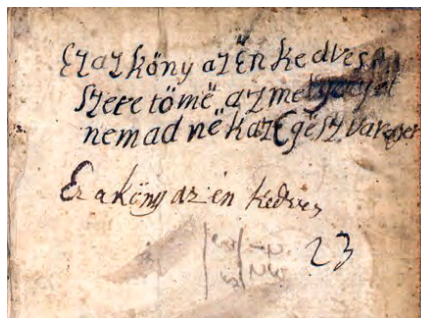 Ez az köny az Ën kedves
szere tömë, az melyeyet
nem ad në k az Egész varaser
Ez a köny az én kedves
23